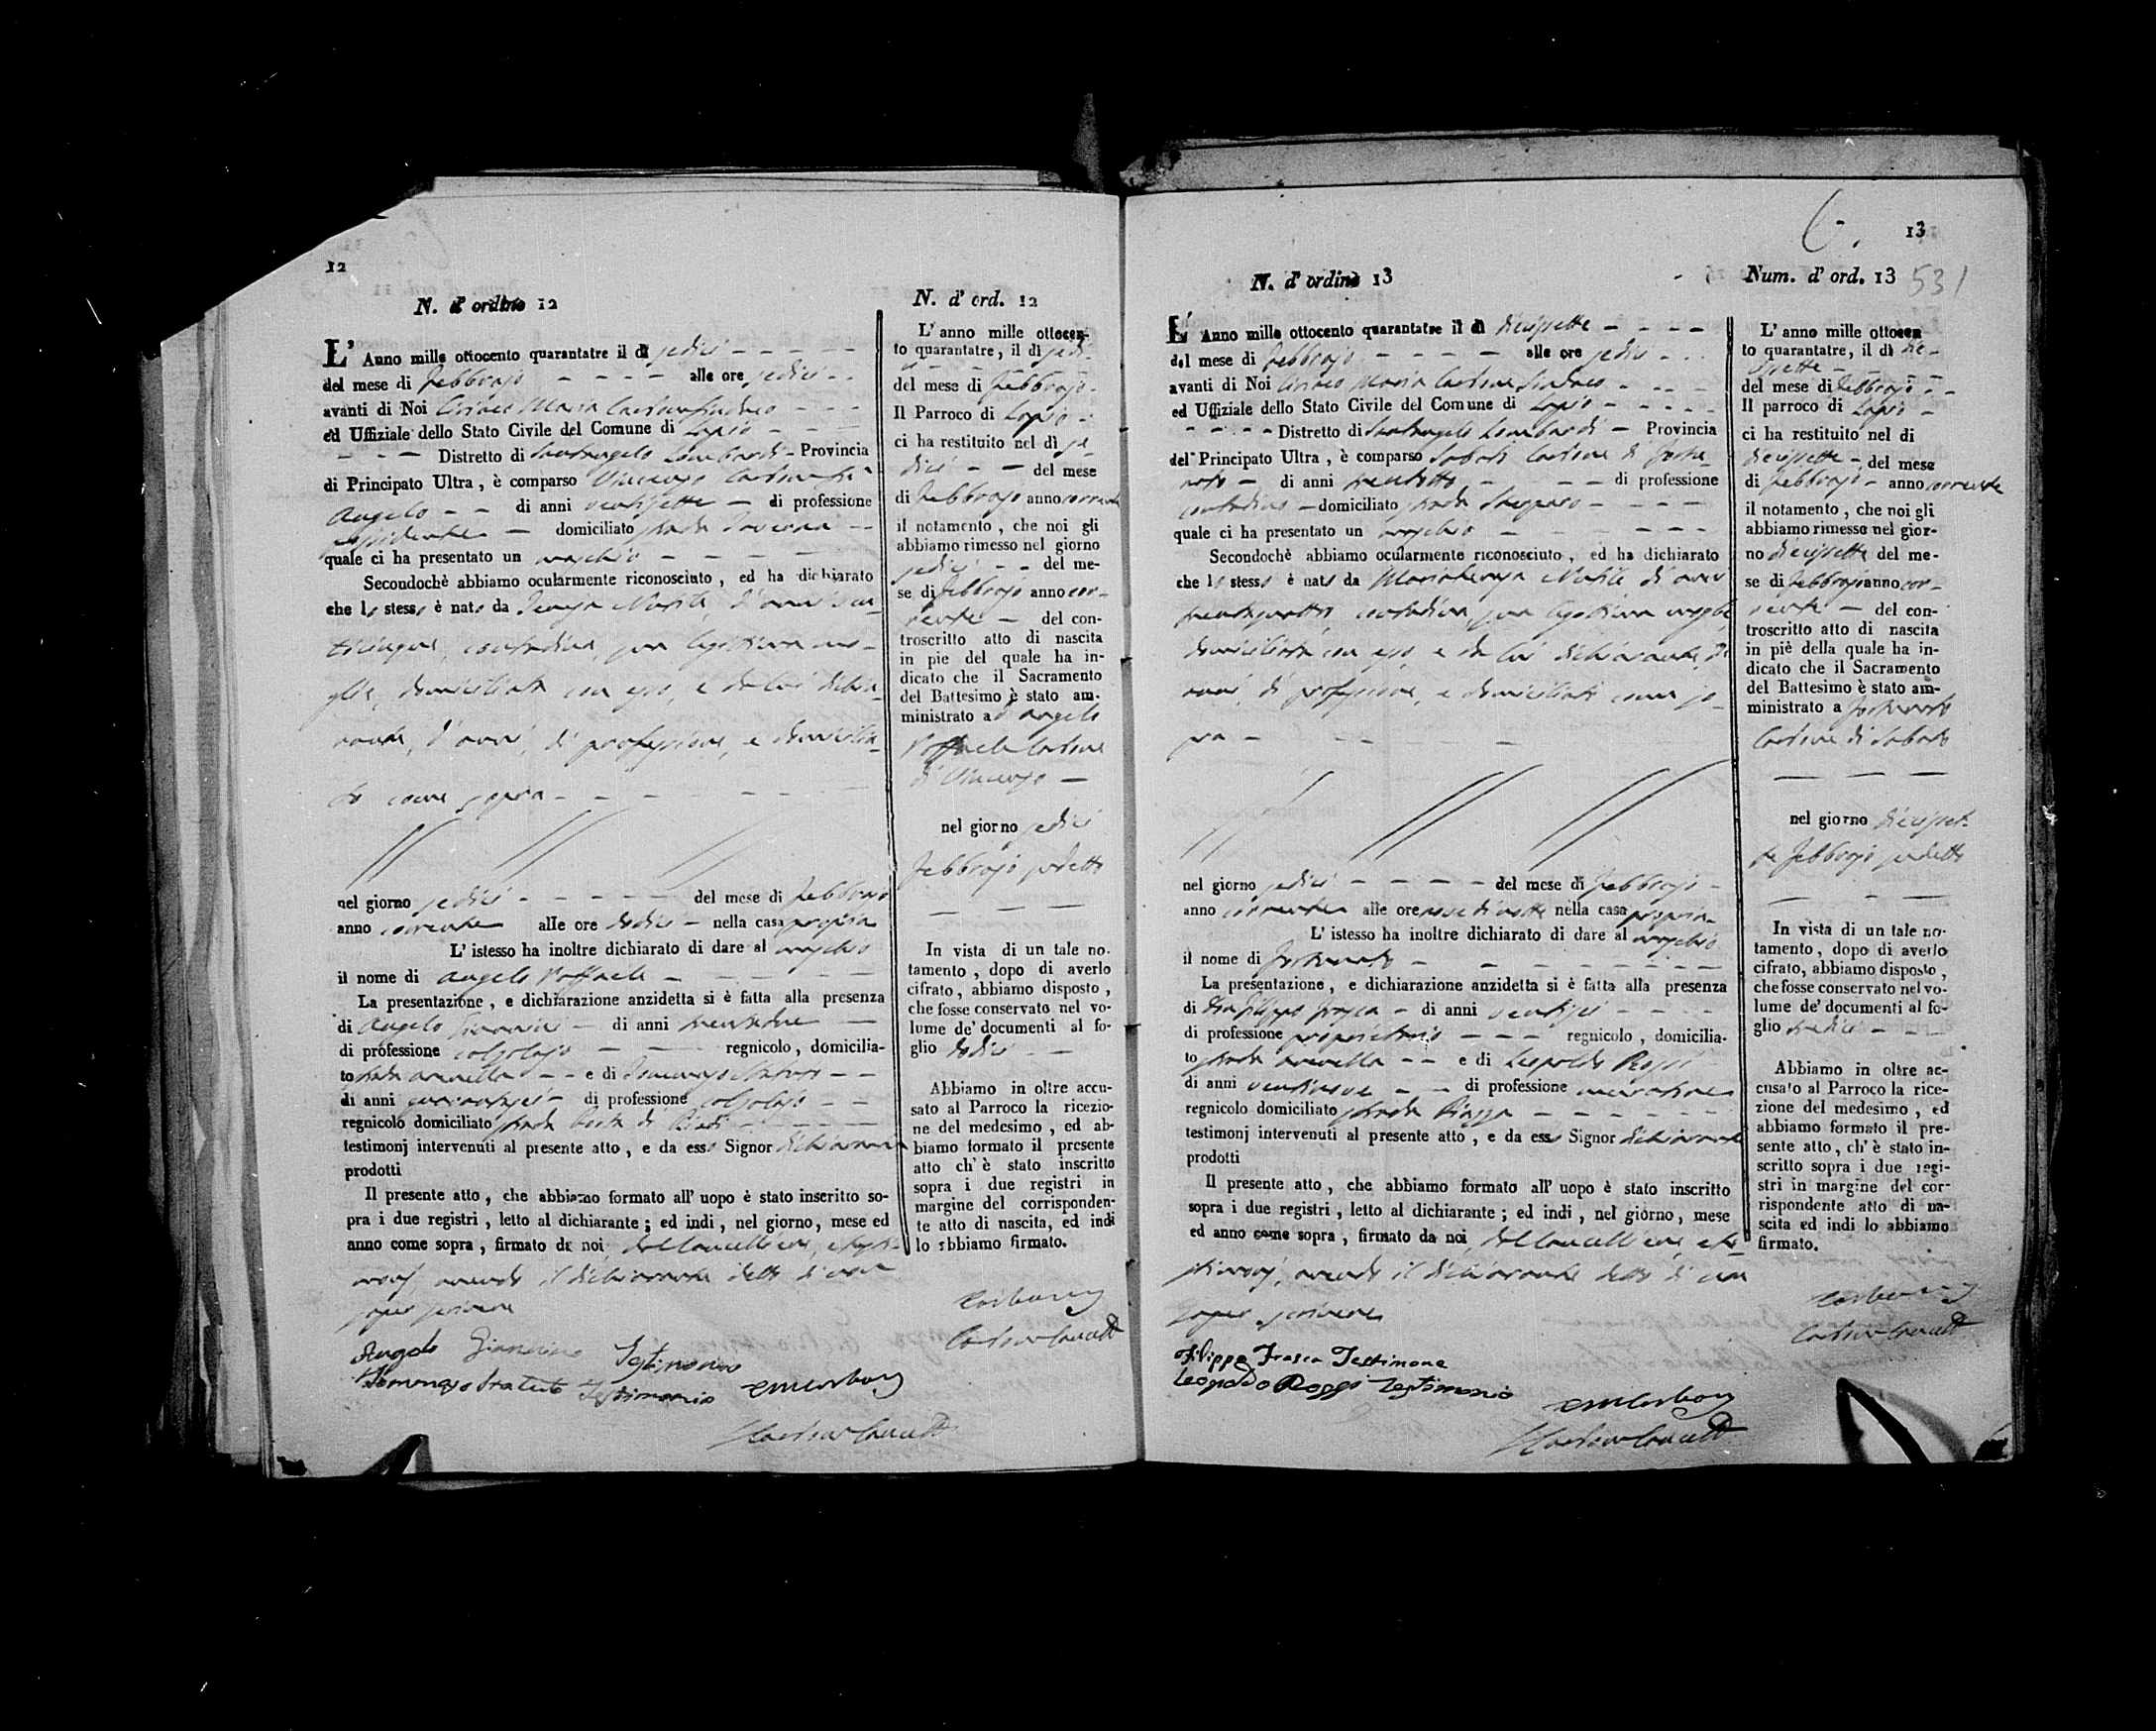 12
N. d' ordine 12
L' Anno mille ottocento quarantatre il dì sedici
del mese di Febbrajo alle ore sedici
avanti di Noi Ciriaco Maria Carbone Sindaco
ed Uffiziale dello Stato Civile del Comune di Lapio
Distretto di Santangelo Lombardi Provincia
di Principato Ultra, è comparso Vincenzo Carbone fu
Angelo di anni ventisette di professione
domiciliato strada
quale ci ha presentato un maschio
Secondochè abbiamo ocularmente riconosciuto, ed ha dichiarato
che lo stesso è nato da d'anni ven-
ticinque, contadina, sua legittima mo-
glie, domiciliata con esso, e da lui dichia-
rante, d'anni, di professione, e domicilia-
to come sopra
nel giorno sedici del mese di Febbrajo
anno corrente alle ore dodici nella casa propria
L' istesso ha inoltre dichiarato di dare al maschio
il nome di Angelo Raffaele
La presentazione, e dichiarazione anzidetta si è fatta alla presenza
di Angelo di anni trentadue
di professione calzolajo regnicolo, domicilia-
to strada e di Domenico
di anni quarantasei di professione calzolajo
regnicolo domiciliato strada
testimonj intervenuti al presente atto, e da esso Signor dichiarante
prodotti
Il presente atto, che abbiamo formato all' uopo è stato inscritto so-
pra i due registri, letto al dichiarante; ed indi, nel giorno, mese ed
anno come sopra, firmato da noi, dal Cancelliere, e testi-
monj, avendo il dichiarante detto di non
saper scrivere
Angelo Testimonio
Testimonio
N. d' ord. 12
L' anno mille ottocen-
to quarantatre, il dì sedi-
ci
del mese di Febbrajo
Il Parroco di Lapio
ci ha restituito nel dì se-
dici del mese
di Febbrajo anno corrente
il notamento, che noi gli
abbiamo rimesso nel giorno
sedici del me-
se di Febbrajo anno cor-
rente del con-
troscritto atto di nascita
in pie del quale ha in-
dicato che il Sacramento
del Battesimo è stato am-
ministrato ad Angelo
Raffaele Carbone
di Vincenzo
nel giorno sedici
Febbrajo sudetto
In vista di un tale no-
tamento, dopo di averlo
cifrato, abbiamo disposto,
che fosse conservato nel vo-
lume de' documenti al fo-
glio dodici
Abbiamo in oltre accu-
sato al Parroco la ricezio-
ne del medesimo, ed ab-
biamo formato il presente
atto ch' è stato inscritto
sopra i due registri in
margine del corrisponden-
te atto di nascita, ed indi
lo abbiamo firmato.
13
N. d' ordine 13
L' Anno mille ottocento quarantatre il dì diecisette
del mese di Febbrajo alle ore sedici
avanti di Noi Ciriaco Maria Carbone Sindaco
ed Uffiziale dello Stato Civile del Comune di Lapio
Distretto di Santangelo Lombardi Provincia
del Principato Ultra, è comparso Sabato Carbone di Fortu-
nato di anni trentotto di professione
contadino domiciliato strada
quale ci ha presentato un maschio
Secondochè abbiamo ocularmente riconosciuto, ed ha dichiarato
che lo stesso è nato da di anni
trentaquattro, contadina, sua legittima moglie
domiciliata con esso, e da lui dichiarante, di
anni, di professione, e domiciliato come so-
pra
nel giorno sedici del mese di Febbrajo
anno corrente alle ore nove di notte nella casa propria
L' istesso ha inoltre dichiarato di dare al maschio
il nome di Fortunato
La presentazione, e dichiarazione anzidetta si è fatta alla presenza
di Don Filippo Frasca di anni ventisei
di professione proprietario regnicolo, domicilia-
to strada e di Leopoldo Rossi
di anni ventinove di professione
regnicolo domiciliato strada Piazza
testimonj intervenuti al presente atto, e da esso Signor dichiarante
prodotti
Il presente atto, che abbiamo formato all' uopo è stato inscritto
sopra i due registri, letto al dichiarante; ed indi, nel giorno, mese
ed anno come sopra, firmato da noi, dal Cancelliere, e te-
stimonj, avendo il dichiarante detto di non
saper scrivere
Filippo Frasca Testimone
Leopoldo Rossi Testimonio
Num. d' ord. 13 531
L' anno mille ottocen
to quarantatre, il dì die-
cisette
del mese di Febbrajo
Il parroco di Lapio
ci ha restituito nel di
diecisette del mese
di Febbrajo anno corrente
il notamento, che noi gli
abbiamo rimesso nel gior-
no diecisette del me-
se di Febbrajo anno cor-
rente del con-
troscritto atto di nascita
in piè della quale ha in-
dicato che il Sacramento
del Battesimo è stato am-
ministrato a Fortunato
Carbone di Sabato
nel giorno dieciset-
te Febbrajo sudetto
In vista di un tale no-
tamento, dopo di averlo
cifrato, abbiamo disposto,
che fosse conservato nel vo-
lume de' documenti al fo-
glio tredici
Abbiamo in oltre ac-
cusato al Parroco la rice-
zione del medesimo, ed
abbiamo formato il pre-
sente atto, ch' è stato in-
scritto sopra i due regi-
stri in margine del cor-
rispondente atto di na-
scita ed indi lo abbiamo
firmato.